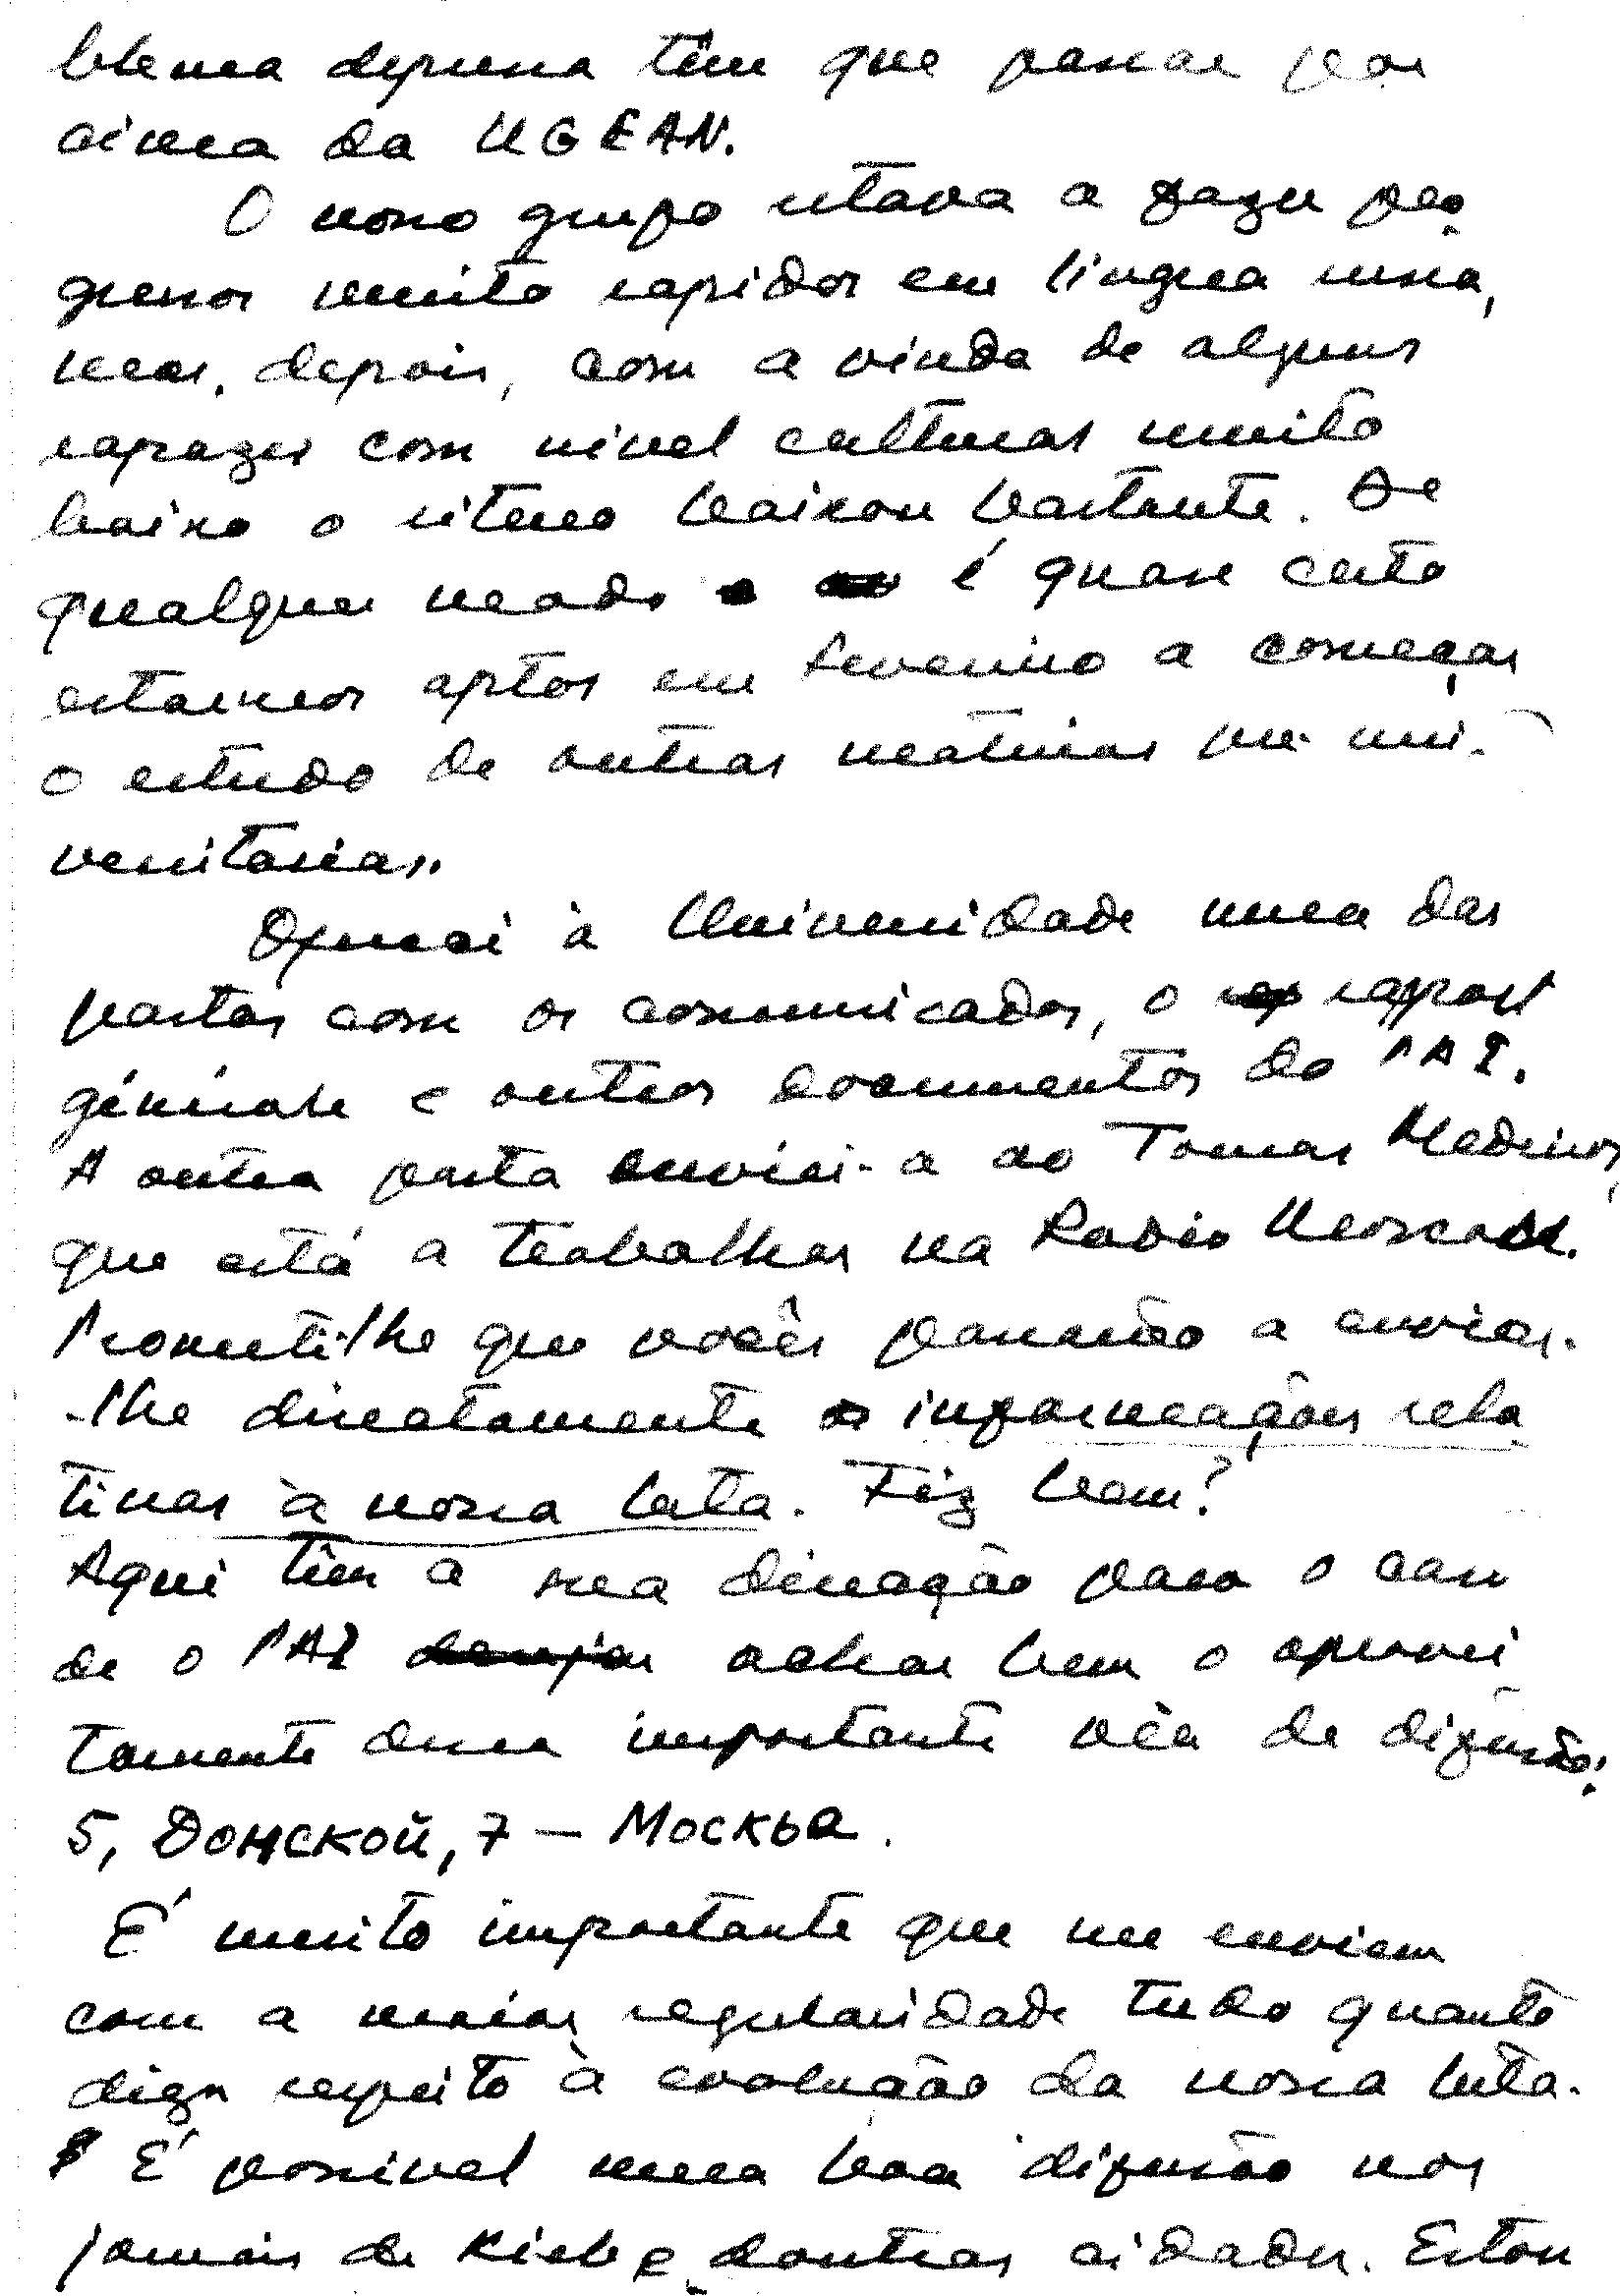 blema depressa têm que passar por
cima da UGEAN.
O nosso grupo estava a fazer pro.
gressos muito rapidos em lingua russa,
mas, depois, com a vinda de alguns
rapazes com nivel cultural muito
baixo o ritmo baixou bastante. De
qualquer modo é quase certo
estarmos aptos em Fevereiro a começar
o estudo de outras matérias pré-uni-
versitarias.
Ofereci à Universidade uma das
pastas com os comunicados, o rapport
général e outros documentos do PAI.
A outra pasta enviei-a ao Tomas Medeiros,
que está a trabalhar na Radio Moscovo.
Prometi-lhe que vocês passarão a enviar-
-lhe directamente as informações rela
tivas à nossa luta. Fiz bem?
Aqui tem a sua direcção para o caso
de o PAI achar bem o aprovei
tamento dessa importante via de difusão:
5, Донской, 7 – Москва.
É muito importante que me enviem
com a maior regularidade tudo quanto
diga respeito à evolução da nossa luta.
É possivel uma boa difusão nos
jornais de Kieb e doutras cidades. Estou